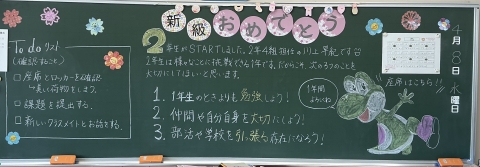 新級おめでとう
To do リスト
(確認すること)
□ 座席とロッカーを確認
→ 荷物をしまう。
□ 課題を提出する。
□ 新しいクラスメイトとお話する。
2年生がSTARTしました。2年4組担任の
2年生は様々なことに挑戦できる1年です。だからこそ、次の3つのことを
大切にしてほしいと思います。
1. 1年生のときよりも勉強しよう!
2. 仲間や自分自身を大切にしよう!
3. 部活や学校を引っ張る存在になろう!
1年間よろしくね
座席はこちら!!
4月8日水曜日